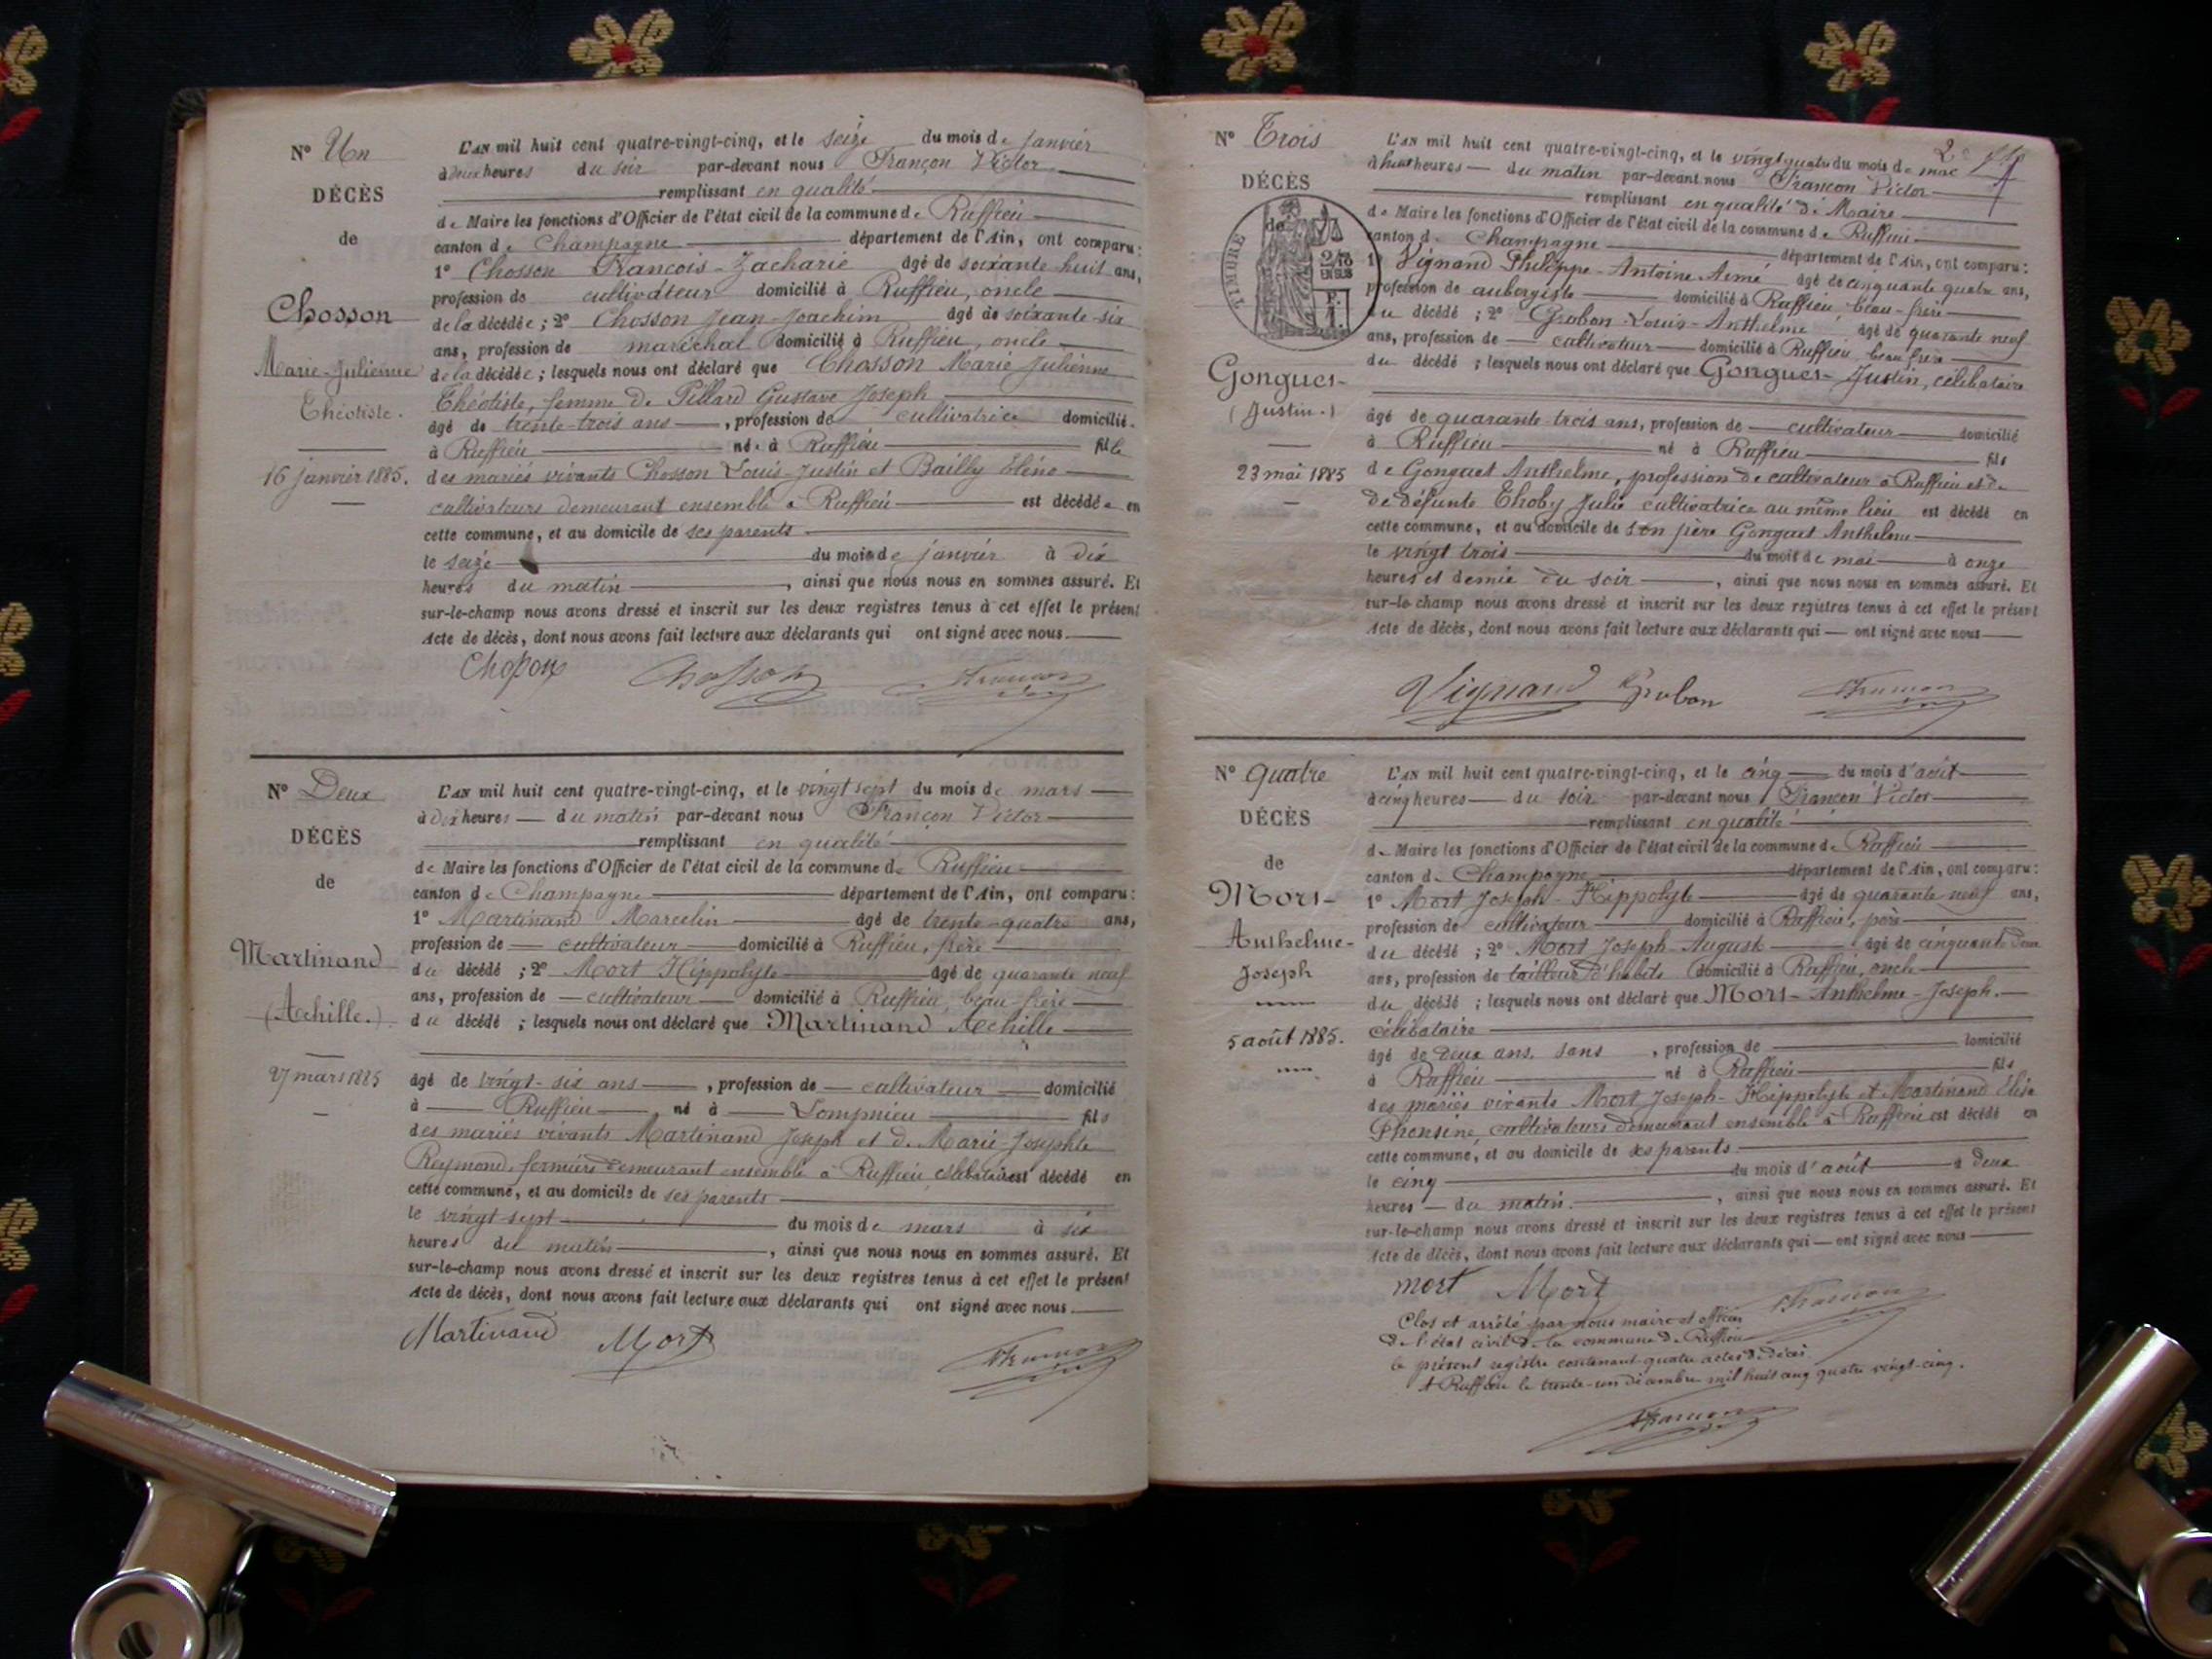 N° Un
DÉCÈS
de
Chosson
Marie-Julienne
Théotiste.
16 janvier 1885.
L'AN mil huit cent quatre-vingt-cinq, et le seize du mois de janvier
à deux heures du soir par-devant nous Françon Victor
remplissant en qualité
de Maire les fonctions d'Officier de l'état civil de la commune de Ruffieu
canton de Champagne département de l'Ain, ont comparu:
1° Chosson François-Zacharie âgé de soixante huit ans,
profession de cultivateur domicilié à Ruffieu, oncle
de la décédée; 2° Chosson Jean-Joachim âgé de soixante-six
ans, profession de maréchal domicilié à Ruffieu, oncle
de la décédée; lesquels nous ont déclaré que Chosson Marie Julienne
Théotiste, femme de Pillard Gustave Joseph
âgé de trente-trois ans, profession de cultivatrice domicilié.
à Ruffieu né. à Ruffieu fille
des mariés vivants Chosson Louis-Justin et Bailly Eléne
cultivateurs demeurant ensemble à Ruffieu est décédée en
cette commune, et au domicile de ses parents
le seize du mois de janvier à dix
heures du matin, ainsi que nous nous en sommes assuré. Et
sur-le-champ nous avons dressé et inscrit sur les deux registres tenus à cet effet le présent
Acte de décès, dont nous avons fait lecture aux déclarants qui ont signé avec nous.
Chosson Chosson Françon
N° Deux
DÉCÈS
de
Martinand
(Achille.)
27 mars 1885
L'AN mil huit cent quatre-vingt-cinq, et le vingt sept du mois de mars
à dix heures du matin par-devant nous Françon Victor
remplissant en qualité
de Maire les fonctions d'Officier de l'état civil de la commune de Ruffieu
canton de Champagne département de l'Ain, ont comparu:
1° Martinand Marcelin âgé de trente-quatre ans,
profession de cultivateur domicilié à Ruffieu, frère
du décédé; 2° Mort Hippolyte âgé de quarante neuf
ans, profession de cultivateur domicilié à Ruffieu, beau-frère
du décédé; lesquels nous ont déclaré que Martinand Achille
âgé de vingt-six ans, profession de cultivateur domicilié
à Ruffieu, né à Lompnieu fils
des mariés vivants Martinand Joseph et de Marie-Josephte
Reymond, fermiers demeurant ensemble à Ruffieu, célibataire est décédé en
cette commune, et au domicile de ses parents
le vingt sept du mois de mars à six
heures du matin, ainsi que nous nous en sommes assuré. Et
sur-le-champ nous avons dressé et inscrit sur les deux registres tenus à cet effet le présent
Acte de décès, dont nous avons fait lecture aux déclarants qui ont signé avec nous.
Martinand Mort Françon
2e
N° Trois
DÉCÈS
de
TIMBRE
2/10
EN SUS
Gonguet
(Justin.)
23 mai 1885
L'AN mil huit cent quatre-vingt-cinq, et le vingt quatre du mois de mai
à huit heures du matin par-devant nous Françon Victor
remplissant en qualité de Maire
de Maire les fonctions d'Officier de l'état civil de la commune de Ruffieu
canton de Champagne département de l'Ain, ont comparu:
1° Vignand Philippe-Antoine Aimé âgé de cinquante quatre ans,
profession de aubergiste domicilié à Ruffieu, beau-frère
du décédé; 2° Grobon Louis-Anthelme âgé de quarante neuf
ans, profession de cultivateur domicilié à Ruffieu, beau frère
du décédé; lesquels nous ont déclaré que Gonguet Justin, célibataire
âgé de quarante trois ans, profession de cultivateur domicilié
à Ruffieu né à Ruffieu fils
de Gonguet Anthelme, profession de cultivateur à Ruffieu et de
de défunte Thoby Julie cultivatrice au même lieu est décédé en
cette commune, et au domicile de son père Gonguet Anthelme
le vingt trois du mois de mai à onze
heures et demie du soir, ainsi que nous nous en sommes assuré. Et
sur-le-champ nous avons dressé et inscrit sur les deux registres tenus à cet effet le présent
Acte de décès, dont nous avons fait lecture aux déclarants qui ont signé avec nous
Vignand Grobon Françon
N° quatre
DÉCÈS
de
Mort
Anthelme-
Joseph
5 août 1885.
L'AN mil huit cent quatre-vingt-cinq, et le cinq du mois d'août
à cinq heures du soir par-devant nous Françon Victor
remplissant en qualité
de Maire les fonctions d'Officier de l'état civil de la commune de Ruffieu
canton de Champagne département de l'Ain, ont comparu:
1° Mort Joseph-Hippolyte âgé de quarante neuf ans,
profession de cultivateur domicilié à Ruffieu, père
du décédé; 2° Mort Joseph-August âgé de cinquante deux
ans, profession de tailleur d'habits domicilié à Ruffieu, oncle
du décédé; lesquels nous ont déclaré que Mort Anthelme-Joseph.
célibataire
âgé de deux ans, sans, profession de domicilié
à Ruffieu né à Ruffieu fils
des mariés vivants Mort Joseph-Hippolyte et Martinand Elisa
Phonsine, cultivateurs demeurant ensemble à Ruffieu est décédé en
cette commune, et au domicile de ses parents
le cinq du mois d'août à deux
heures du matin., ainsi que nous nous en sommes assuré. Et
sur-le-champ nous avons dressé et inscrit sur les deux registres tenus à cet effet le présent
Acte de décès, dont nous avons fait lecture aux déclarants qui ont signé avec nous
mort Mort Françon
Clos et arrêté par nous maire et officier
de l'état civil de la commune de Ruffieu
le présent registre contenant quatre actes de décès
A Ruffieu le trente-un décembre mil huit cent quatre vingt-cinq.
Françon